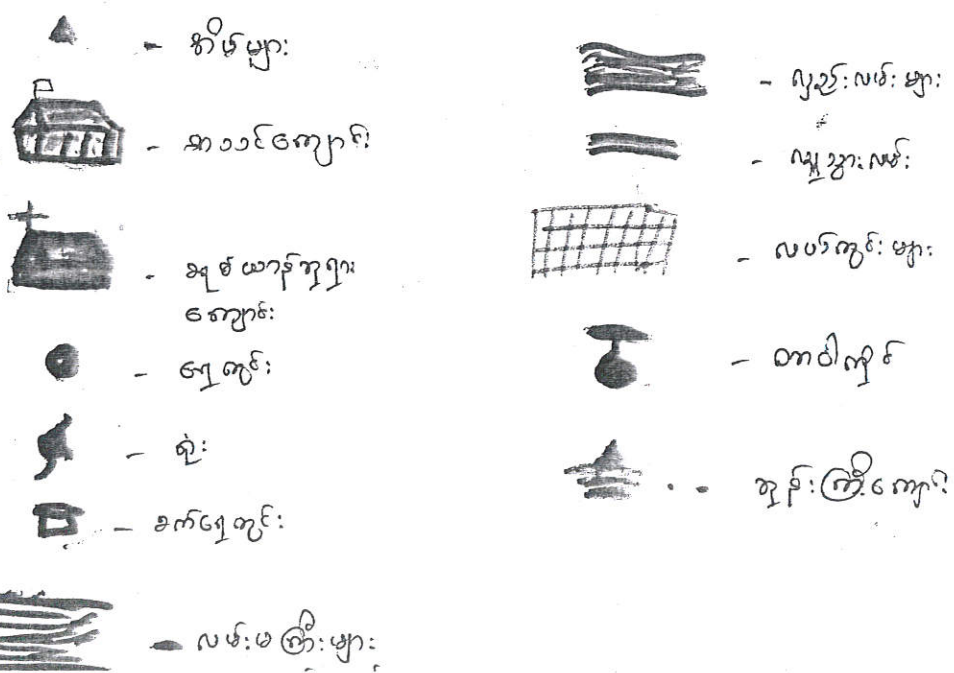 - အိမ်များ
- စာသင်ကျောင်း
- ခရစ်ယာန်ဘုရား
ကျောင်း
- ရေတွင်း
- ရုံး
- စက်ရေတွင်း
- လမ်းမကြီးများ
- လှည်းလမ်းများ
- လူသွားလမ်း
- လယ်ကွင်းများ
- တာဝါတိုင်
- ဘုန်းကြီးကျောင်း